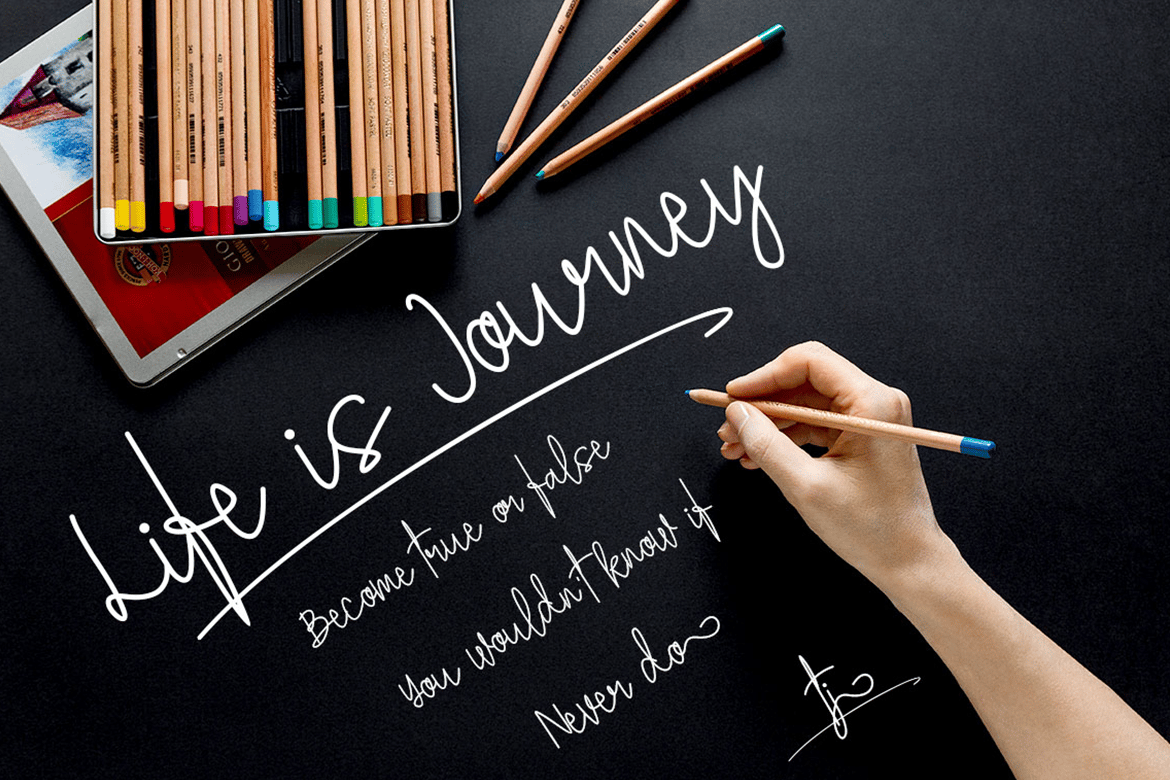 Life is Journey
Become true or false
You wouldn't know if
Never do
tj
GIO